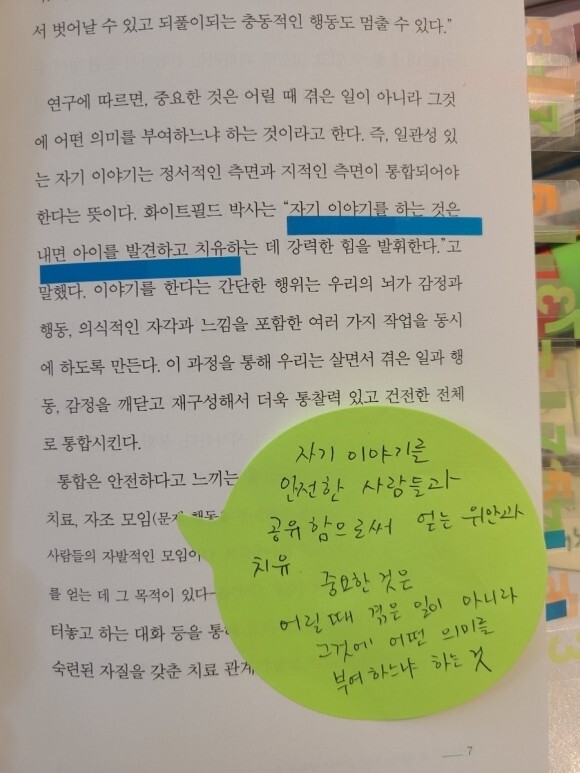 서 벗어날 수 있고 되풀이되는 충동적인 행동도 멈출 수 있다.”
연구에 따르면, 중요한 것은 어릴 때 겪은 일이 아니라 그것
에 어떤 의미를 부여하느냐 하는 것이라고 한다. 즉, 일관성 있
는 자기 이야기는 정서적인 측면과 지적인 측면이 통합되어야
한다는 뜻이다. 화이트필드 박사는 “자기 이야기를 하는 것은
내면 아이를 발견하고 치유하는 데 강력한 힘을 발휘한다.”고
말했다. 이야기를 한다는 간단한 행위는 우리의 뇌가 감정과
행동, 의식적인 자각과 느낌을 포함한 여러 가지 작업을 동시
에 하도록 만든다. 이 과정을 통해 우리는 살면서 겪은 일과 행
동, 감정을 깨닫고 재구성해서 더욱 통찰력 있고 건전한 전체
로 통합시킨다.
통합은 안전하다고 느끼는
치료, 자조 모임(문제 행동
사람들의 자발적인 모임이
를 얻는 데 그 목적이 있다―
터놓고 하는 대화 등을 통
숙련된 자질을 갖춘 치료 관계
자기 이야기를
안전한 사람들과
공유함으로써 얻는 위안과
치유
중요한 것은
어릴때 겪은 일이 아니라
그것에 어떤 의미를
부여하느냐 하는 것
7